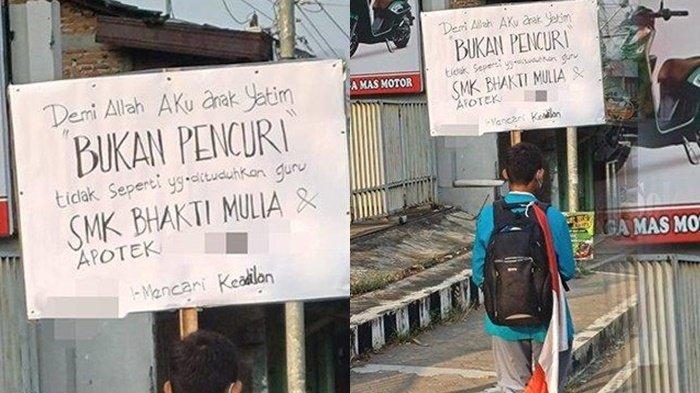 Demi Allah Aku anak Yatim
"BUKAN PENCURI"
tidak seperti yg dituduhkan guru
SMK BHAKTI MULIA &
APOTEK
Mencari Keadilan
Demi Allah Aku anak Yatim
"BUKAN PENCURI"
tidak seperti yg dituduhkan guru
SMK BHAKTI MULIA &
APOTEK
Mencari Keadilan
GA MAS MOTOR
GA MAS MOTOR